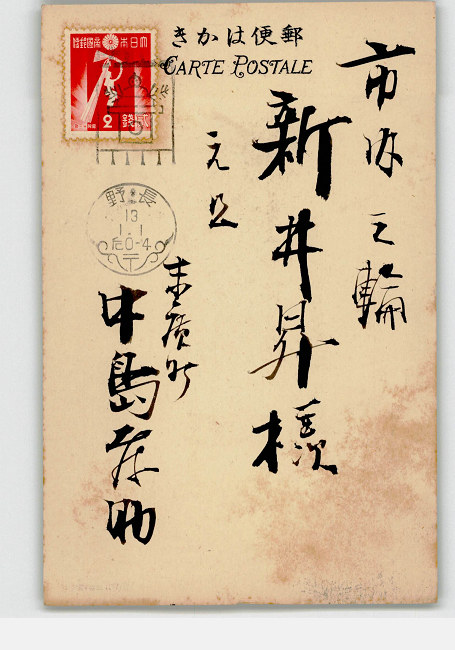 郵便はかき
CARTE POSTALE
大日本帝國郵便
2 貳錢
長野
13
1.1
后0-4
市内三輪
新井昇様
元旦
末廣町
中島 助